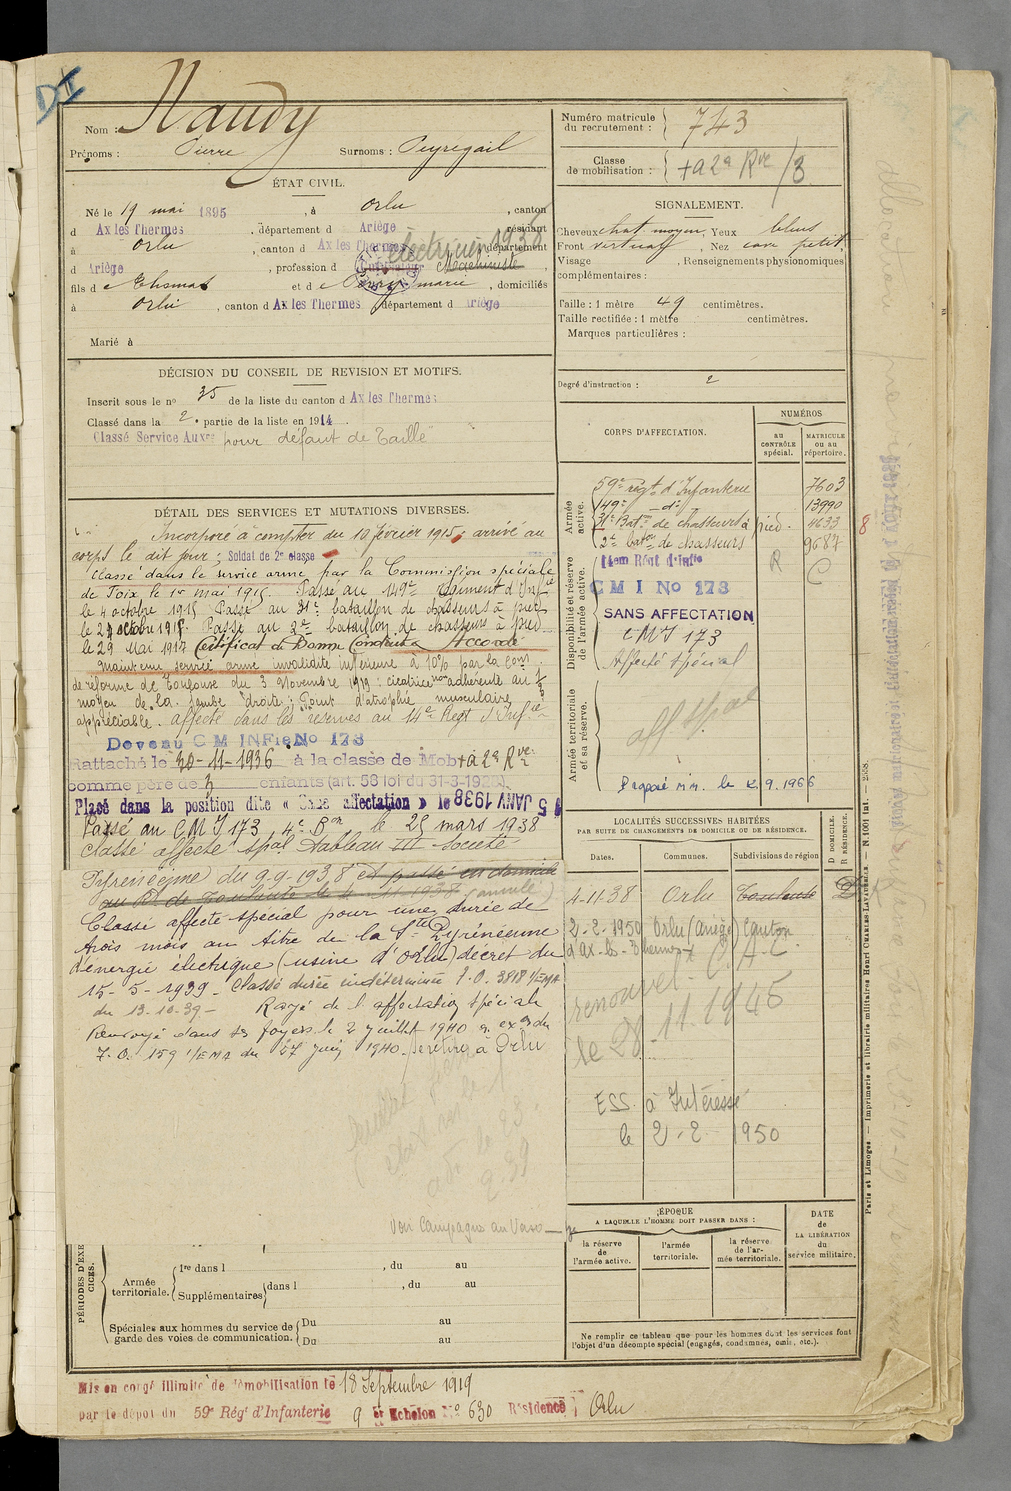 D II
Nom : Naudy
Prénoms : Pierre Surnoms : Peyregail
ÉTAT CIVIL.
Né le 19 mai 1895, à Orlu, canton
d Ax les Thermes, département d Ariège résidant
à Orlu, canton d Ax les Thermes département
électricien 1938
d Ariège, profession d Cultivateur Machiniste,
fils d e Thomas et d e marie, domiciliés
à Orlu, canton d Ax les Thermes département d Ariège
Marié à
DÉCISION DU CONSEIL DE REVISION ET MOTIFS.
Inscrit sous le no 35 de la liste du canton d Ax les Thermes
Classé dans la 2e partie de la liste en 1914.
Classé Service Auxre pour défaut de Taille"
DÉTAIL DES SERVICES ET MUTATIONS DIVERSES.
Incorporé à compter du 10 février 1915, arrivé au
corps le dit jour ; Soldat de 2e classe
Classé dans le service armé par la Commission spéciale
de Foix le 1er mai 1915. Passé au 149e Régiment d'Infie
le 4 octobre 1915 Passé au 31e bataillon de chasseurs à pied
le 29 octobre 191. Passé au 2e bataillon de chasseurs à pied
le 29 Mai 1917 Certificat de Bonne Conduite Accordé
maintenu service armé invalidité inférieure à 10% par la Com.
de réforme de Toulouse du 3 Novembre 1919 : cicatrice non adhérente au
moyen de la jambe droite ; Point d'atrophie musculaire
appréciable. affecté dans les réserves au 14e Régt d'Infie
Devenu C M INFie No 173
Rattaché le 30-11-1936 à la classe de Mob + à 2e Rve
comme père de 3 enfants (art. 58 loi du 31-3-1928).
Placé dans la position dite « Sans affectation » le 5 JANV 1938
Passé au CMI 173 4e Bon le 25 mars 1938
Classé affecté spal Tableau III Société
Pyrénéenne du 9-9-1938 et passé en domicile
au R. de Toulouse le 4 11 1937 (annulé)
Classé affecté spécial pour une durée de
trois mois au titre de la Sté Pyrénéenne
d'énergie électrique (usine d'Orlu) décret du
15-5-1939 - Classé durée indéterminée I.O. 3818 1/EMA
du 13-10-39 - Rayé de l'affectation spéciale
Renvoyé dans ses foyers le 2 juillet 1940 en exon du
I.O. 159 1/EMA du 27 Juin 1940 se retire à Orlu
Voir Campagne au Verso
PÉRIODES D'EXERCICES.
Armée territoriale.
1re dans l , du au
Supplémentaires dans l , du au
Spéciales aux hommes du service de garde des voies de communication.
Du au
Du au
Mis en congé illimité de démobilisation le 18 Septembre 1919
par le dépôt du 59e Régt d'Infanterie 9 e Echelon No 630 Résidence Orlu
Numéro matricule du recrutement : 743
Classe de mobilisation : + à 2e Rve /3
SIGNALEMENT.
Cheveux chat. moyen, Yeux bleus
Front vertical, Nez cave petit.
Visage , Renseignements physionomiques
complémentaires :
Taille : 1 mètre 49 centimètres.
Taille rectifiée : 1 mètre centimètres.
Marques particulières :
Degré d'instruction : 2
CORPS D'AFFECTATION.
NUMÉROS
au CONTRÔLE spécial.
MATRICULE ou au répertoire.
Armée active.
59e régt d'Infanterie 7603
149e - d° 13990
31e Bat. de chasseurs à pied. 4633 8
2e baton de chasseurs 9687
Disponibilité et réserve de l'armée active.
14em Régt d'Infie R C
C M I No 173
SANS AFFECTATION
CMI 173
Affecté spécial
Armée territoriale et sa réserve.
aff spal
LOCALITÉS SUCCESSIVES HABITÉES
PAR SUITE DE CHANGEMENTS DE DOMICILE OU DE RÉSIDENCE.
Dates. Communes. Subdivisions de région
D DOMICILE.
R RÉSIDENCE.
4-11-38 Orlu Toulouse D
2-2-1950 Orlu (Ariège) Canton
d'Ax-les-Thermes
le 28.11.1945
ESS. à Intéressé
le 2-2 1950
ÉPOQUE
A LAQUELLE L'HOMME DOIT PASSER DANS :
la réserve de l'armée active.
l'armée territoriale.
la réserve de l'armée territoriale.
DATE de LA LIBÉRATION du service militaire.
Ne remplir ce tableau que pour les hommes dont les services font
l'objet d'un décompte spécial (engagés, condamnés, omis, etc.).
Paris et Limoges. — Imprimerie et librairie militaires Henri CHARLES-LAVAUZELLE. — N. 1001 Int. — 2558.